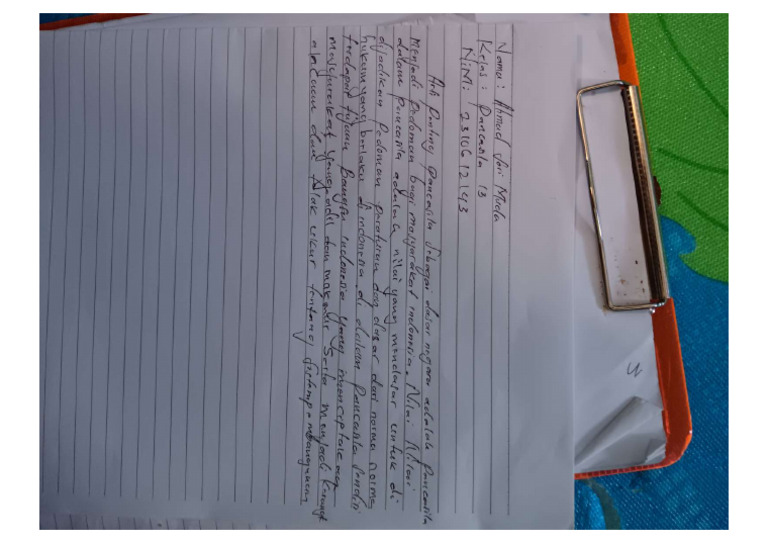 Nama : Ahmad Jori Muda
Kelas : Pancasila 13
NIM : 2310612143
Arti Penting Pancasila sebagai dasar negara adalah Pancasila
menjadi Pedoman bagi masyarakat indonesia. Nilai Nilai
dalam Pancasila adalah nilai yang mendasar untuk di
dijadikan Pedoman peraturan dan dasar dari norma norma
hukum yang berlaku di indonesia. di dalam Pancasila sendiri
terdapat tujuan bangsa indonesia yang menciptakan
masyarakat yang adil dan makmur serta menjadi
dan tolak ukur tentang